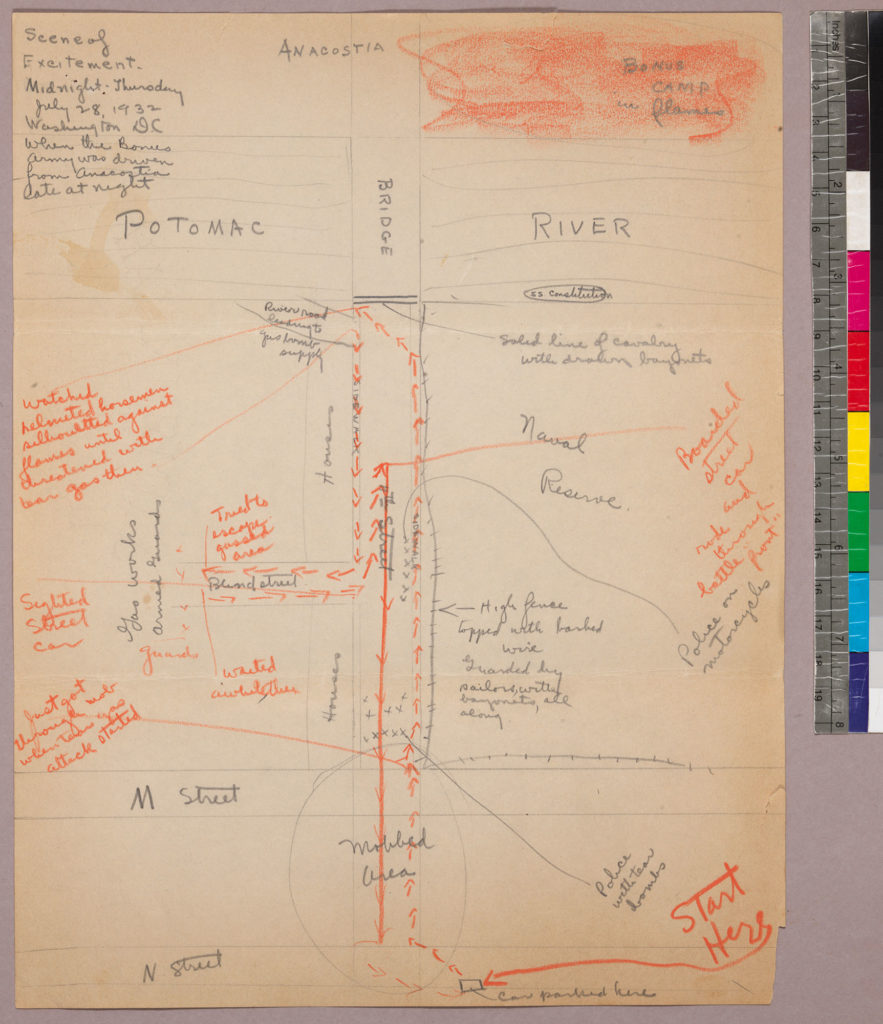 Scene of
Excitement -
Midnight - Thursday
July 28, 1932
Washington DC
When the Bonus
Army was driven
from Anacostia
late at night
ANACOSTIA
BONUS
CAMP
in flames
POTOMAC
BRIDGE
RIVER
SS. Constitution
River road
leading to
gas bomb
supply
Solid line of cavalry
with drawn bayonets
Watched
helmeted horsemen
silhouetted against
flames until
threatened with
tear gas then -
SIDEWALK
Houses
Naval
Reserve.
Boarded
street
car
and
rode
through
battle front"
Police on
motorcycles
11th Street
SIDEWALK
Tried to
escape
gassed
area
Gas works
armed guards
Blind street
Sighted
Street
car
Guards
High fence
topped with barbed
wire
Guarded by
sailors, with
bayonets, all
along
Houses
waited
awhile then
Just got
through mob
when tear gas
attack started
M Street
Mobbed
Area
Police
with tear
bombs
START
HERE
N Street
Car parked here
Inches
1
2
3
4
5
6
7
8
2
3
5
6
7
8
9
10
11
12
13
14
15
16
17
18
19